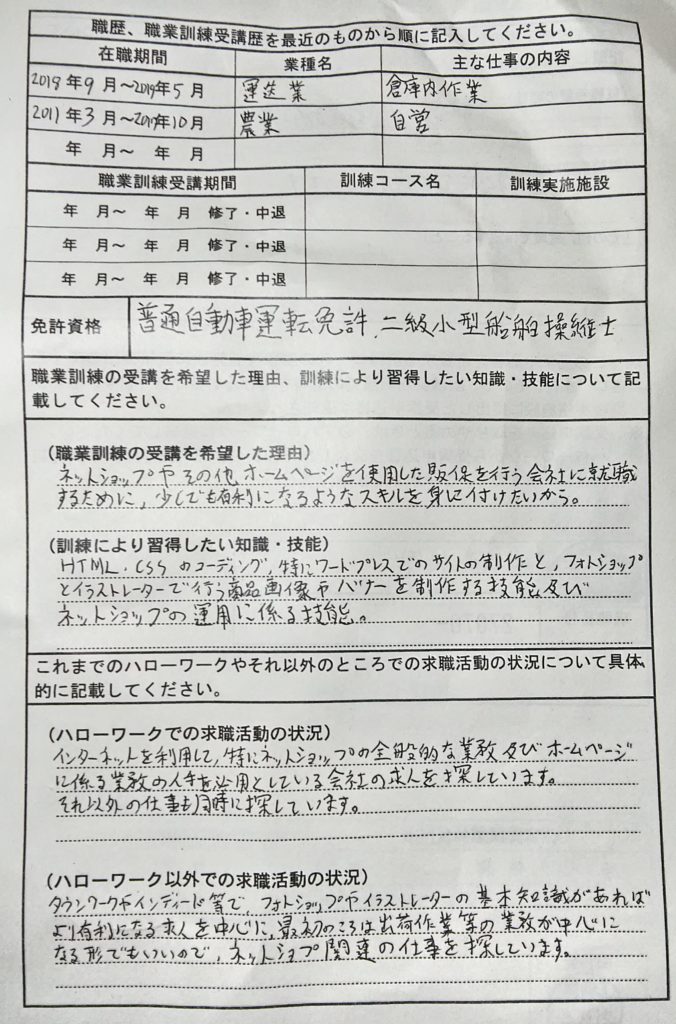 職歴、職業訓練受講歴を最近のものから順に記入してください。
在職期間 業種名 主な仕事の内容
2018年9月～2019年5月 運送業 倉庫内作業
2011年3月～ 年10月 農業 自営
年 月～ 年 月
職業訓練受講期間 訓練コース名 訓練実施施設
年 月～ 年 月 修了・中退
年 月～ 年 月 修了・中退
年 月～ 年 月 修了・中退
免許資格 普通自動車運転免許、二級小型船舶操縦士
職業訓練の受講を希望した理由、訓練により習得したい知識・技能について記
載してください。
(職業訓練の受講を希望した理由)
ネットショップやその他ホームページを使用した販促を行う会社に就職
するために、少しでも有利になるようなスキルを身に付けたいから。
(訓練により習得したい知識・技能)
HTML・CSSのコーディング、特にワードプレスでのサイトの制作と、フォトショップ
とイラストレーターで行う商品画像やバナーを制作する技能及び
ネットショップの運用に係る技能。
これまでのハローワークやそれ以外のところでの求職活動の状況について具体
的に記載してください。
(ハローワークでの求職活動の状況)
インターネットを利用して、特にネットショップの全般的な業務及びホームページ
に係る業務の人手を必用としている会社の求人を探しています。
それ以外の仕事も同時に探しています。
(ハローワーク以外での求職活動の状況)
タウンワークやインディード等で、フォトショップやイラストレーターの基本知識があれば
より有利になる求人を中心に、最初のころは出荷作業等の業務が中心に
なる形でもいいので、ネットショプ関連の仕事を探しています。